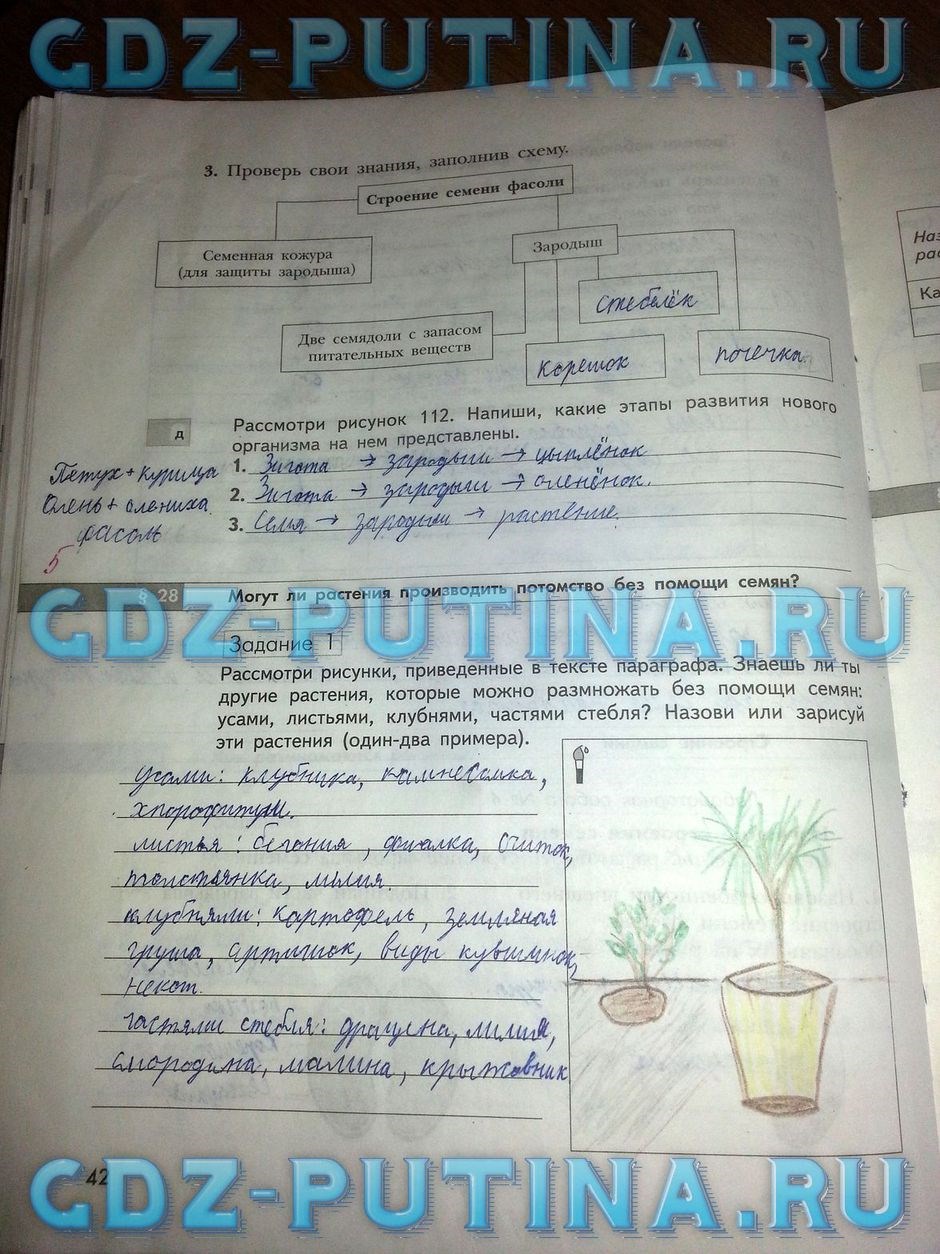 GDZ-PUTINA.RU
3. Проверь свои знания, заполнив схему.
Строение семени фасоли
Семенная кожура
(для защиты зародыша)
Зародыш
стебелёк
Две семядоли с запасом
питательных веществ
корешок
почечка.
Наз
рас
Ка
д
Рассмотри рисунок 112. Напиши, какие этапы развития нового
организма на нем представлены.
Петух + курица
1. Зигота → зародыш → цыплёнок
Олень + олениха
2. Зигота → зародыш → оленёнок.
фасоль
3. Семя → зародыш → растение.
5
§ 28
Могут ли растения производить потомство без помощи семян?
GDZ-PUTINA.RU
Задание 1
Рассмотри рисунки, приведенные в тексте параграфа. Знаешь ли ты
другие растения, которые можно размножать без помощи семян:
усами, листьями, клубнями, частями стебля? Назови или зарисуй
эти растения (один-два примера).
усами: клубника, камнеломка,
хлорофитум.
листья: бегония, фиалка, очиток,
толстянка, лилия.
клубнями: картофель, земляная
груша, артишок, виды кувшинок,
некот.
частями стебля: драцена, лилия,
смородина, малина, крыжовник
42
GDZ-PUTINA.RU